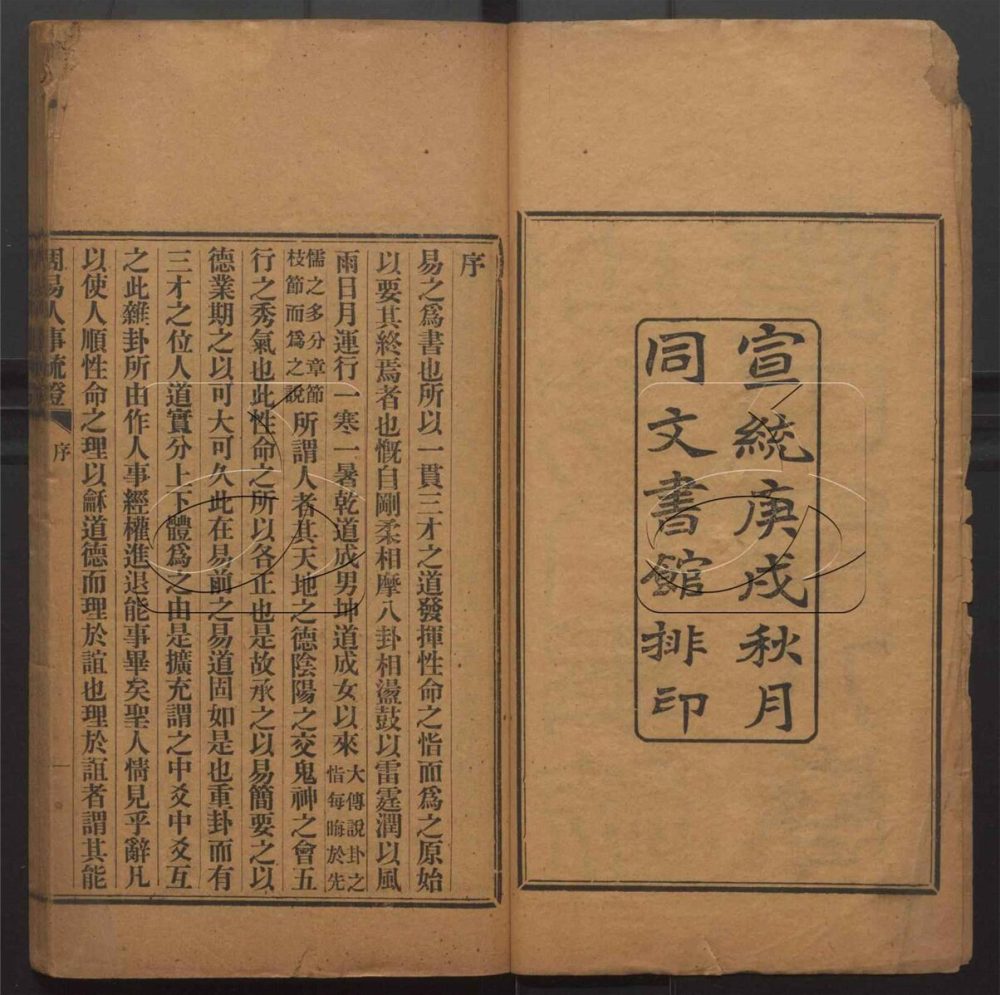 宣統庚戌秋月
同文書館排印
序
易之爲書也所以一貫三才之道發揮性命之恉而爲之原始
以要其終焉者也慨自剛柔相摩八卦相盪鼓以雷霆潤以風
雨日月運行一寒一暑乾道成男坤道成女以來大傳說卦之恉每晦於先
儒之多分章節枝節而爲之說所謂人者其天地之德陰陽之交鬼神之會五
行之秀氣也此性命之所以各正也是故承之以易簡要之以
德業期之以可大可久此在易前之易道固如是也重卦而有
三才之位人道實分上下體爲之由是擴充謂之中爻中爻互
之此雜卦所由作人事經權進退能事畢矣聖人情見乎辭凡
以使人順性命之理以龢道德而理於誼也理於誼者謂其能
周易人事疏證
序
一